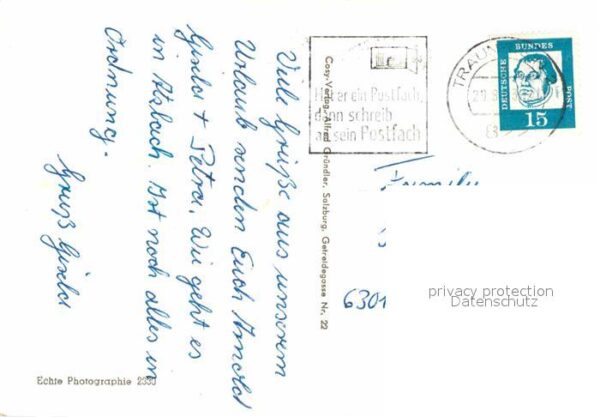 Viele Grüße aus unserem
Urlaub senden Euch Arnold
Gisela + Petra. Wie geht es
in Atzbach. Ist noch alles in
Ordnung.
Gruß Gisela
Echte Photographie 2330
Cosy-Verlag Alfred Gründler, Salzburg, Getreidegasse Nr. 22
Hat er ein Postfach,
dann schreib
an sein Postfach
TRAUN
DEUTSCHE BUNDESPOST
15
Familie
6301
privacy protection
Datenschutz